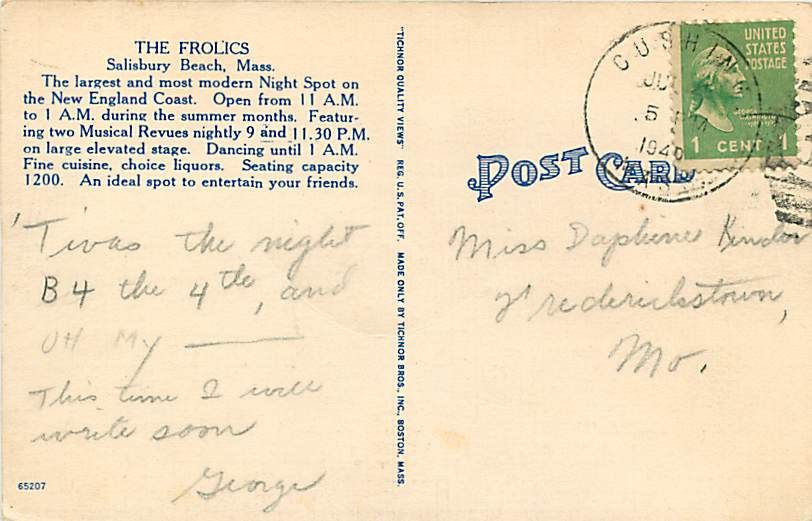 THE FROLICS
Salisbury Beach, Mass.
The largest and most modern Night Spot on
the New England Coast. Open from 11 A.M.
to 1 A.M. during the summer months. Featur-
ing two Musical Revues nightly 9 and 11.30 P.M.
on large elevated stage. Dancing until 1 A.M.
Fine cuisine, choice liquors. Seating capacity
1200. An ideal spot to entertain your friends.
'Twas the night
B4 the 4th, and
OH MY ———
This time I will
write soon
George
65207
"TICHNOR QUALITY VIEWS" REG. U.S. PAT. OFF. MADE ONLY BY TICHNOR BROS., INC., BOSTON, MASS.
POST CARD
CUSHING
5
MASS.
UNITED
STATES
POSTAGE
1 CENT 1
Miss Daphine
Fredericktown,
Mo.